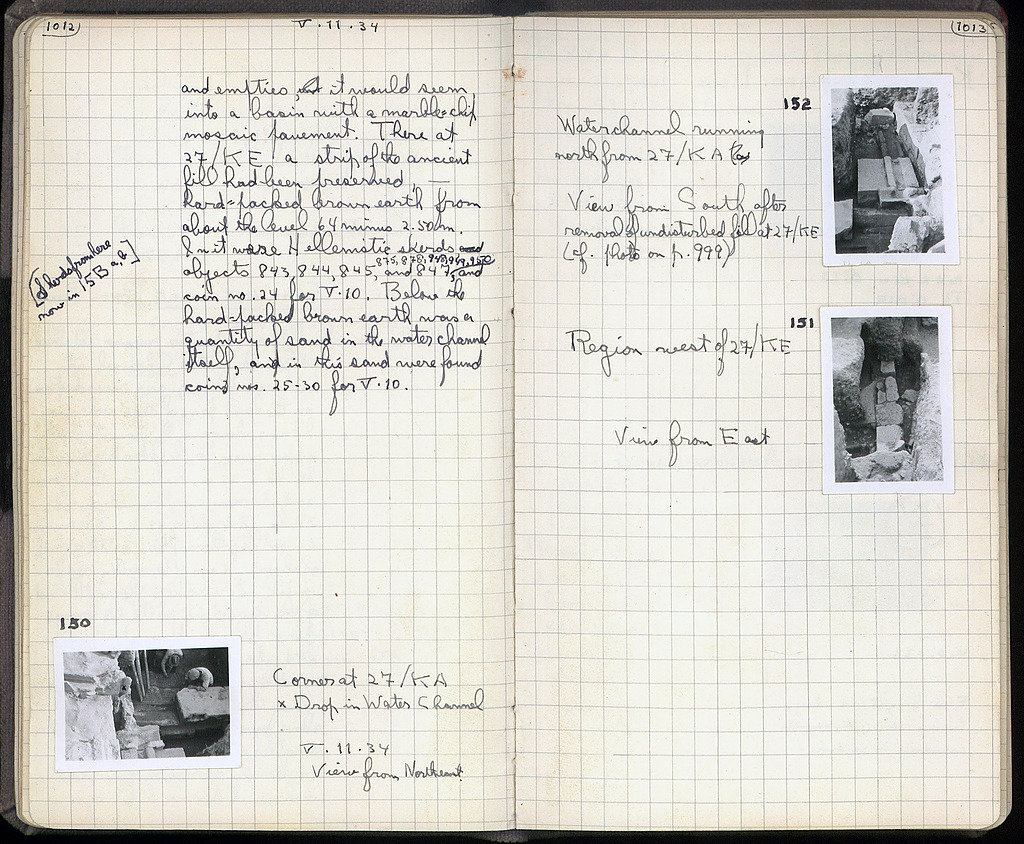 1012
V . 11 . 34
and empties, it would seem,
into a basin with a marble-chip
mosaic pavement. There at
27/KE a strip of the ancient
fill had been preserved, —
hard-packed brown earth from
about the level 64 minus 2.50m.
In it were Hellenistic sherds and
875, 878, 948, 949, 950
objects 843, 844, 845, and 847, and
coin no. 24 for V.10. Below the
hard-packed brown earth was a
quantity of sand in the water channel
itself, and in this sand were found
coins nos. 25-30 for V.10.
[Sherds from here
now in 15 B a, b]
150
Corner at 27/KA
x Drop in Water Channel
V . 11 . 34
View from Northeast
1013
152
Water channel running
north from 27/KA
View from South after
removal of undisturbed fill at 27/KE
(cf. photo on p. 999)
151
Region west of 27/KE
View from East